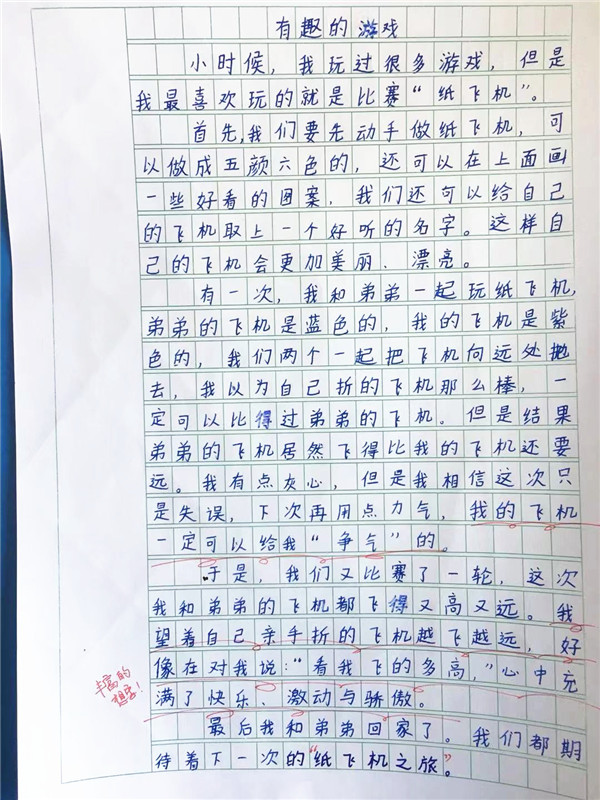 有趣的游戏
小时候，我玩过很多游戏，但是
我最喜欢玩的就是比赛“纸飞机”。
首先，我们要先动手做纸飞机，可
以做成五颜六色的，还可以在上面画
一些好看的图案，我们还可以给自己
的飞机取上一个好听的名字。这样自
己的飞机会更加美丽、漂亮。
有一次，我和弟弟一起玩纸飞机，
弟弟的飞机是蓝色的，我的飞机是紫
色的，我们两个一起把飞机向远处抛
去，我以为自己折的飞机那么棒，一
定可以比得过弟弟的飞机。但是结果
弟弟的飞机居然飞得比我的飞机还要
远。我有点灰心，但是我相信这次只
是失误，下次再用点力气，我的飞机
一定可以给我“争气”的。
于是，我们又比赛了一轮，这次
我和弟弟的飞机都飞得又高又远。我
望着自己亲手折的飞机越飞越远，好
像在对我说：“看我飞的多高，”心中充
满了快乐、激动与骄傲。
最后我和弟弟回家了。我们都期
待着下一次的“纸飞机之旅”。
丰富的
想象！